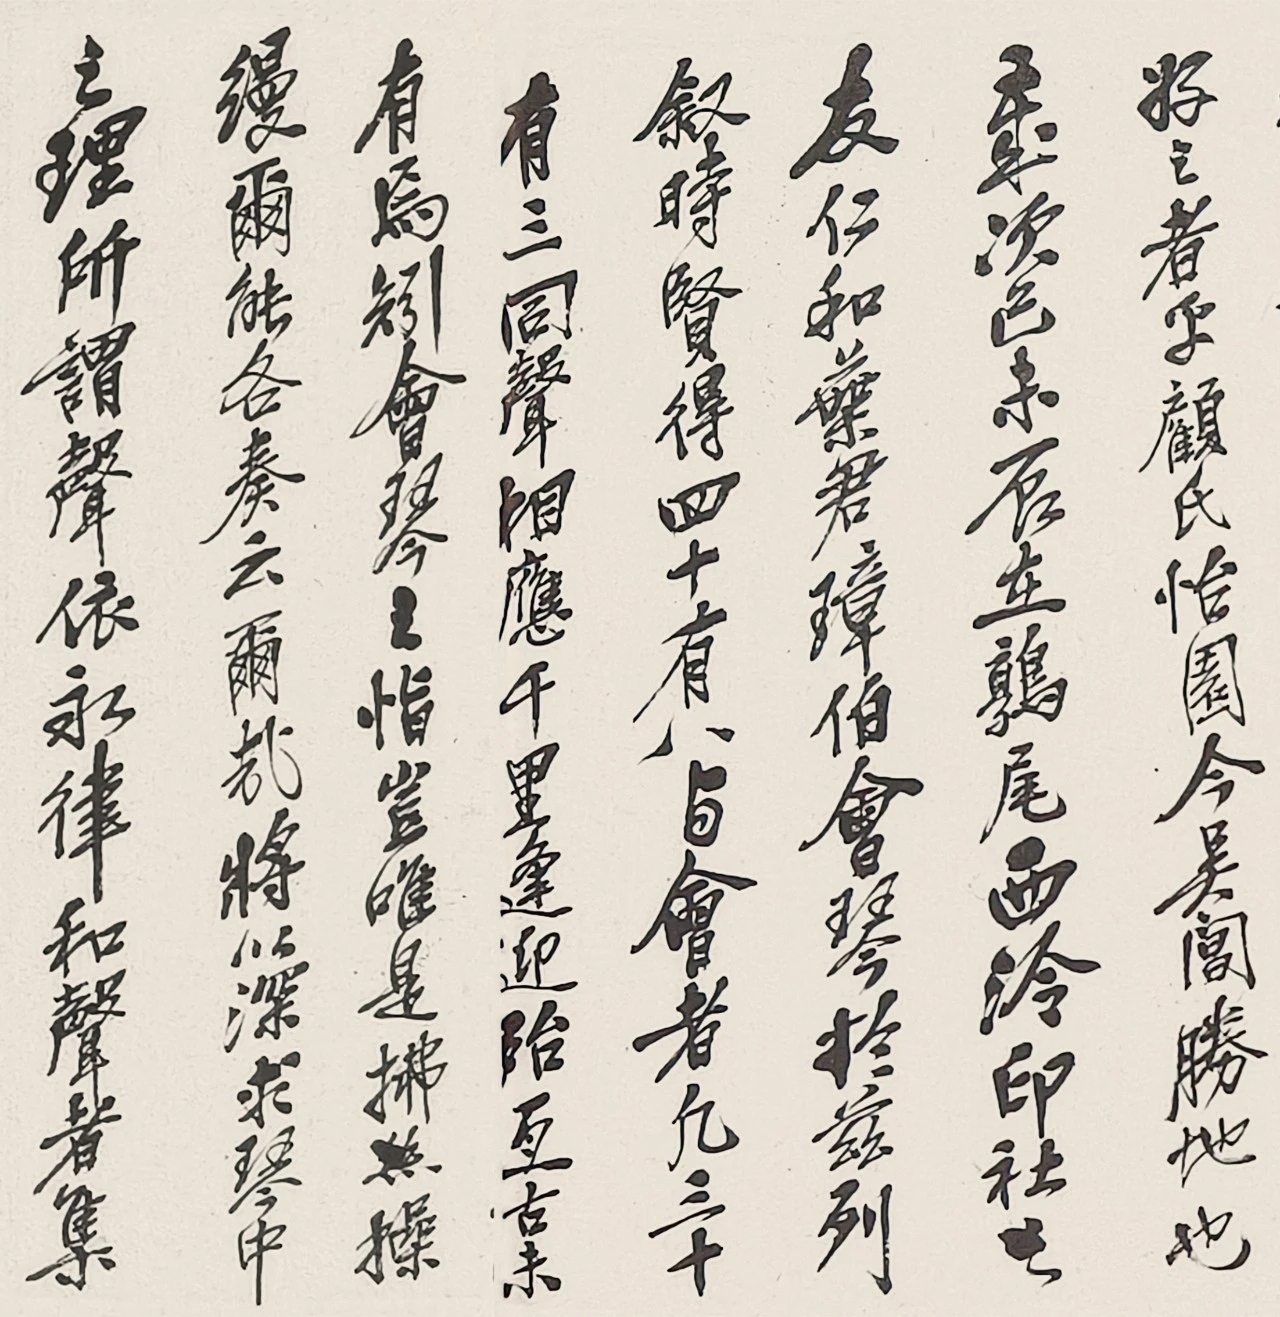 好之者乎顧氏怡園今吳閶勝地也
歲次己未辰在鶉尾西泠印社之
友仁和葉君璋伯會琴於茲列
敘時賢得四十有八与會者凡三十
有三同聲相應千里逢迎殆亙古未
有焉矧會琴之恉豈唯是拂絲操
縵爾能各奏云爾哉將以深求琴中
之理所謂聲依永律和聲者集